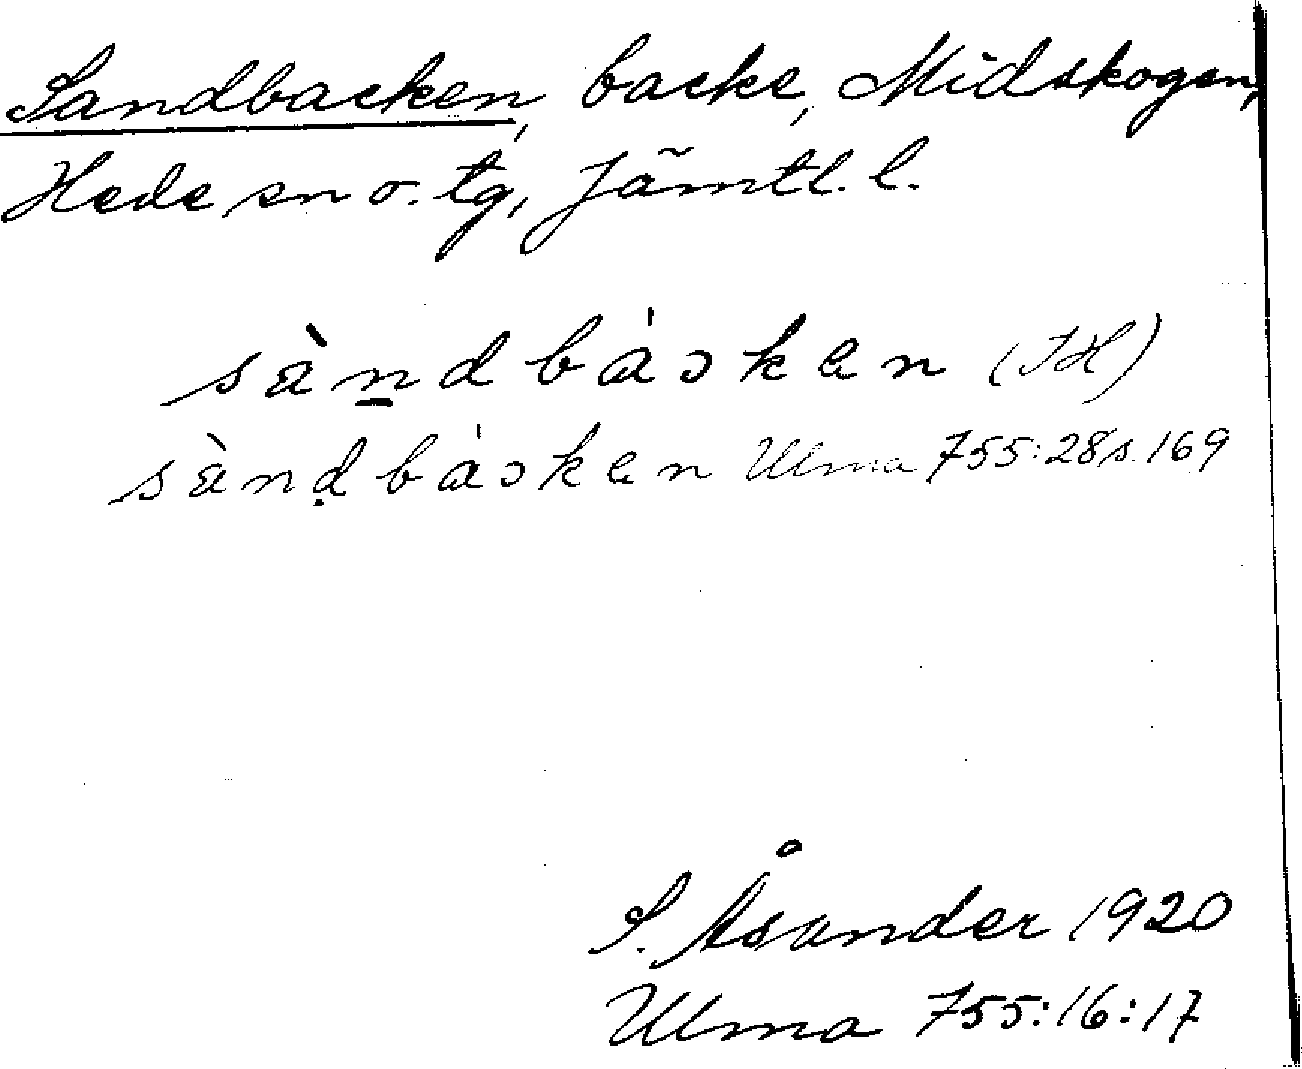 Sandbacken, backe, Midskogen,
Hede sn o. tg, Jämtl. l.
sàn̲dbáɔken (JH)
sànḍbáɔken Ulma 755:28 s. 169
S. Åsander 1920
Ulma 755:16:17